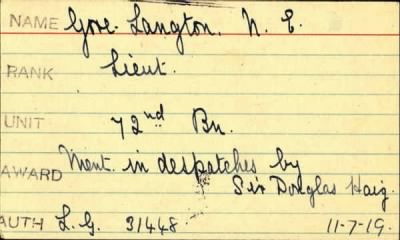 NAME Gore-Langton, N. E.
RANK Lieut.
UNIT 72nd Bn.
AWARD Ment. in despatches by
Sir Douglas Haig.
AUTH L.G. 31448 11-7-19.